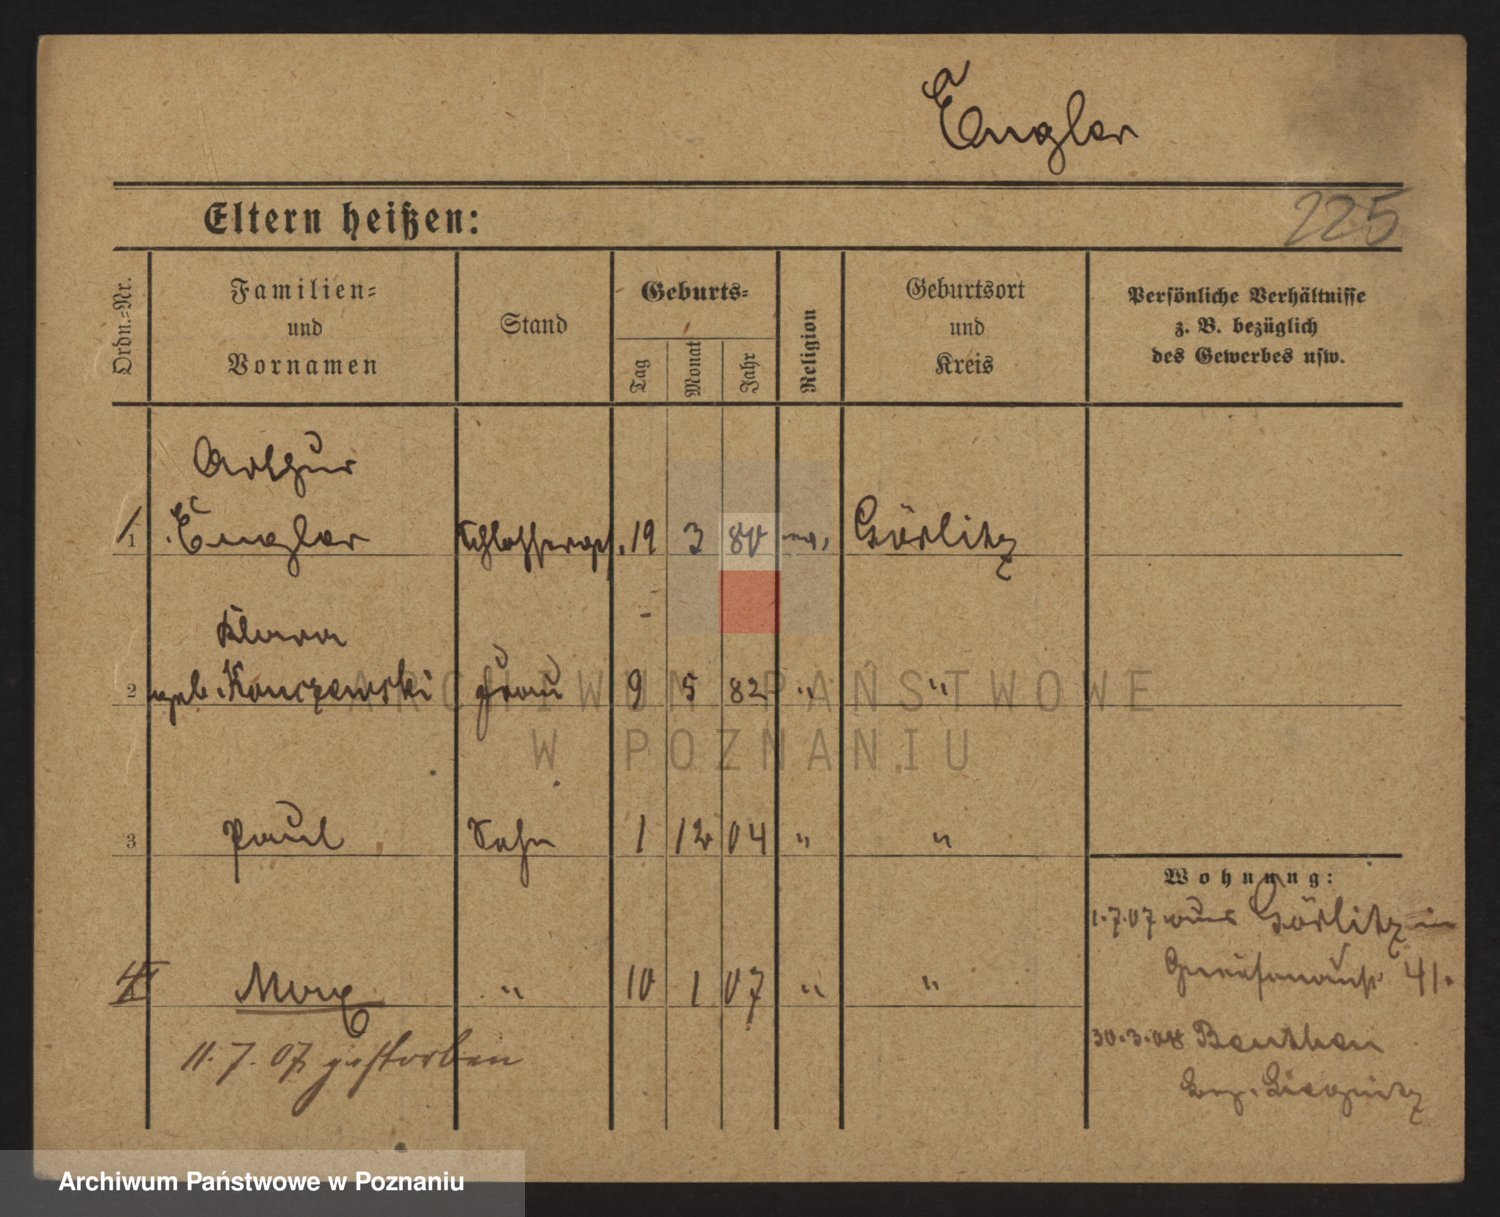 Engler
Eltern heißen:
225
Ordn.-Nr.
Familien-
und
Vornamen
Stand
Geburts-
Tag
Monat
Jahr
Religion
Geburtsort
und
Kreis
Persönliche Verhältnisse
z. B. bezüglich
des Gewerbes usw.
Arthur
1 Engler Schlosserges. 19 3 80 ev. Görlitz
Klara
2 geb. Konczewski Frau 9 5 82 " "
3 Paul Sohn 1 12 04 " "
Max " 10 1 07 " "
11.7.07 gestorben
Wohnung:
1.7.07 aus Görlitz in
41.
30.3.08 Beuthen
Bez. Liegnitz
ARCHIWUM PAŃSTWOWE
W POZNANIU
Archiwum Państwowe w Poznaniu